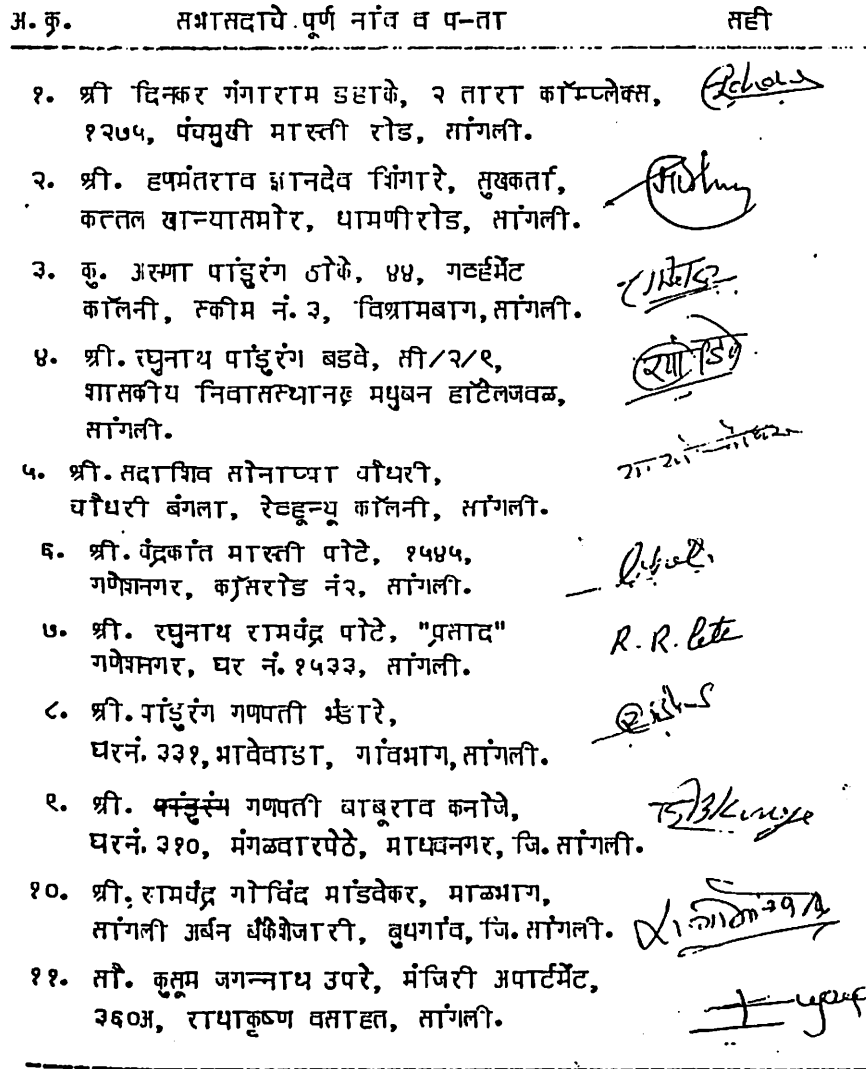 अ. कृ. सभासदाचे पूर्ण नांव व प-ता सही
१. श्री दिनकर गंगाराम डहाके, २ तारा कॉम्प्लेक्स,
१२७५, पंचमुखी मारुती रोड, सांगली.
२. श्री. हणमंतराव ज्ञानदेव शिंगारे, सुखकर्ता,
कत्तल खान्यासमोर, धामणीरोड, सांगली.
३. कु. अरुणा पांडुरंग ठोके, ४४, गव्हर्मेंट
कॉलनी, स्कीम नं. ३, विश्रामबाग, सांगली.
४. श्री. रघुनाथ पांडुरंग बडवे, सी/२/९,
शासकीय निवासस्थान मधुबन हॉटेलजवळ,
सांगली.
५. श्री. सदाशिव सोनाप्पा चौधरी,
चौधरी बंगला, रेव्हून्यू कॉलनी, सांगली.
६. श्री. चंद्रकांत मारुती पोटे, १५४५,
गणेशनगर, क्रॉसरोड नं२, सांगली.
७. श्री. रघुनाथ रामचंद्र पोटे, "प्रसाद" R. R. Pote
गणेशनगर, घर नं. १५३३, सांगली.
८. श्री. पांडुरंग गणपती भंडारे,
घरनं. ३३१, भावेवाडा, गांवभाग, सांगली.
९. श्री. पांडुरंग गणपती बाबूराव कनोजे,
घरनं. ३१०, मंगळवारपेठे, माधवनगर, जि. सांगली.
१०. श्री. रामचंद्र गोविंद मांडवेकर, माळभाग,
सांगली अर्बन बँकेशेजारी, बुधगांव, जि. सांगली.
११. सौ. कुसूम जगन्नाथ उपरे, मंजिरी अपार्टमेंट,
३६०अ, राधाकृष्ण वसाहत, सांगली.